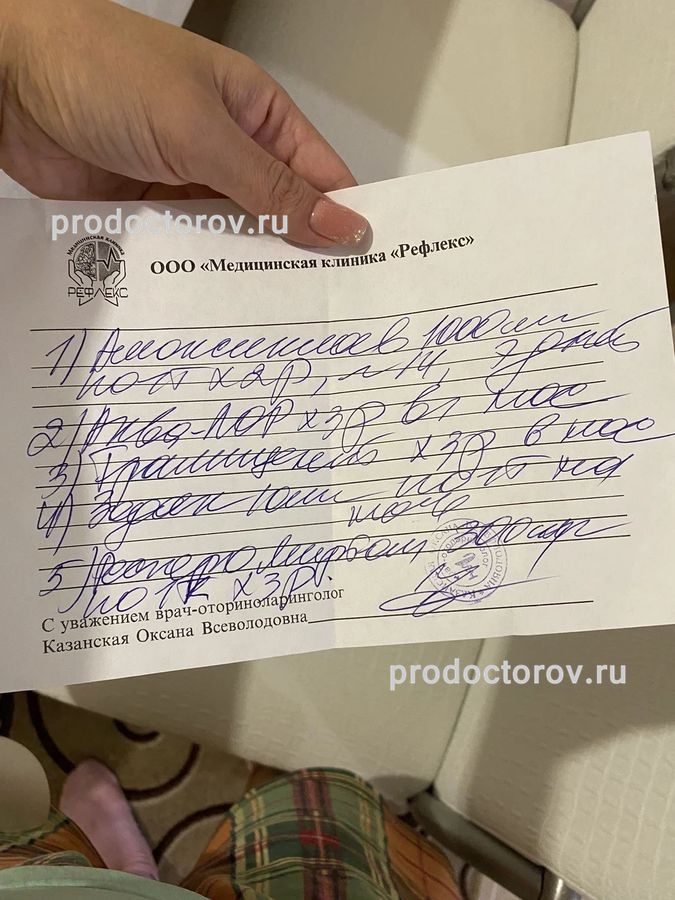 prodoctorov.ru
Медицинская клиника
РЕФЛЕКС
ООО «Медицинская клиника «Рефлекс»
1) Амоксиклав 1000мг
по 1т х 2р, №14, 7дней
2) Аква-ЛОР х 3р в нос
3) х 3р в нос
4) Зодак 10мг по 1т на
ночь
5) 300мг
по 1к х 3р.
С уважением врач-оториноларинголог
Казанская Оксана Всеволодовна
prodoctorov.ru